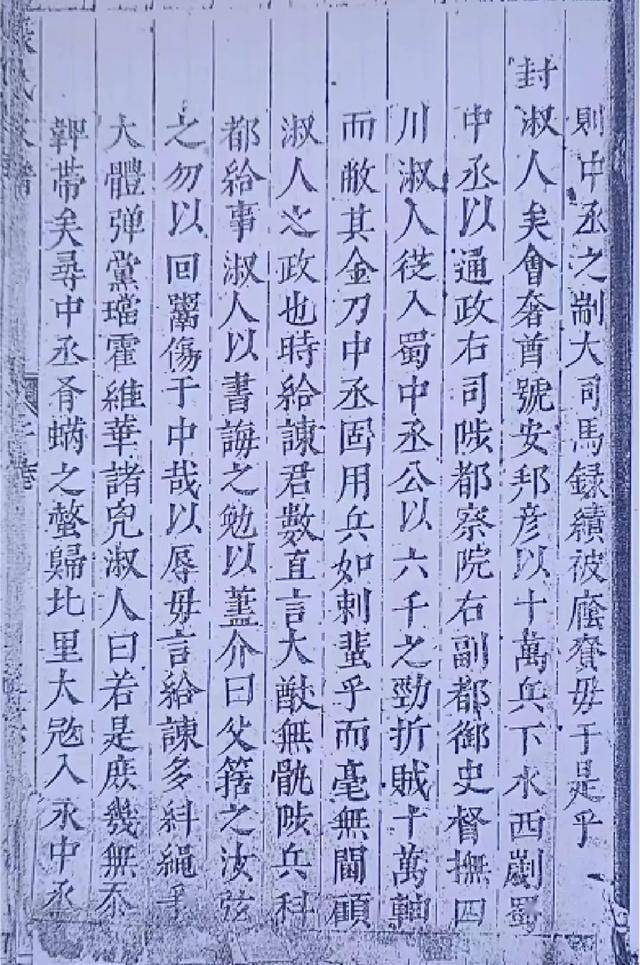 則中丞之制大司馬錄績被廕賚毋于是乎
封淑人矣會奢酋號安邦彥以十萬兵下水西劘蜀
中丞以通政右司陟都察院右副都御史督撫四
川淑人從入蜀中丞公以六千之勁折賊十萬輈
而敝其金刀中丞固用兵如刺蜚乎而毫無閫顧
淑人之政也時給諫君數直言大猷無骫陟兵科
都給事淑人以書誨之勉以藎介曰父簭之汝弦
之勿以回鬻傷于中哉以辱毋言給諫多糾繩乎
大體彈黨璫霍維華諸兇淑人曰若是庶幾無忝
鞶帶矣尋中丞胥蜹之螫歸比里大寇入永中丞